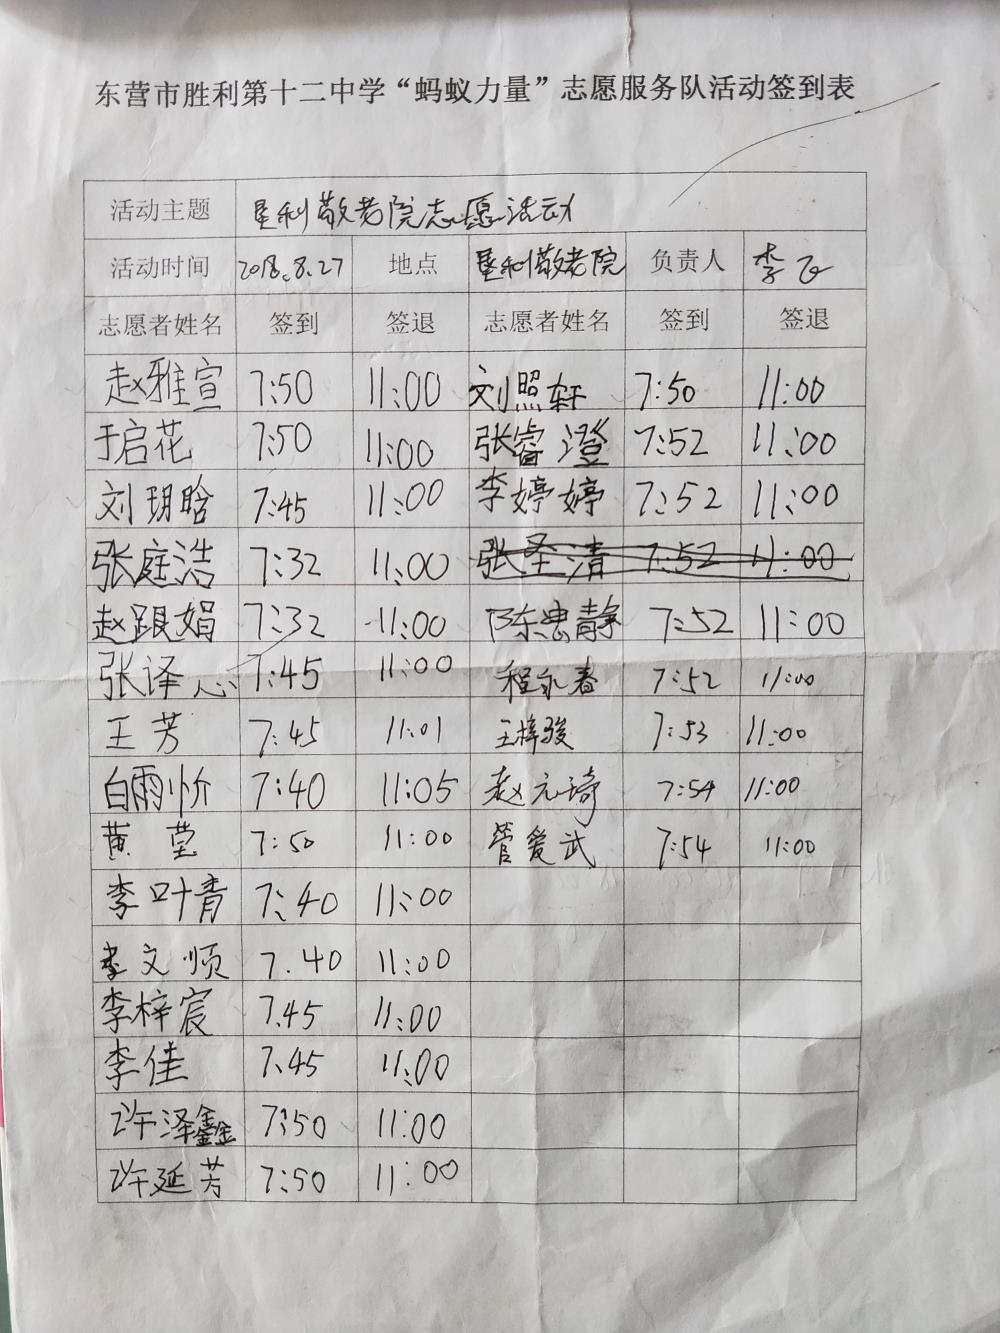 东营市胜利第十二中学“蚂蚁力量”志愿服务队活动签到表
活动主题 垦利敬老院志愿活动
活动时间 2018.8.27 地点 垦利敬老院 负责人 李飞
志愿者姓名 签到 签退 志愿者姓名 签到 签退
赵雅宣 7:50 11:00 刘照轩 7:50 11:00
于启花 7:50 11:00 张睿澄 7:52 11:00
刘玥晗 7:45 11:00 李婷婷 7:52 11:00
张庭浩 7:32 11:00 张圣清 7:52 11:00
赵跟娟 7:32 11:00 陈忠静 7:52 11:00
张译心 7:45 11:00 程永春 7:52 11:00
王芳 7:45 11:01 王梓骏 7:53 11:00
白雨忻 7:40 11:05 赵元琦 7:54 11:00
黄莹 7:50 11:00 管爱武 7:54 11:00
李叶青 7:40 11:00
李文顺 7.40 11:00
李梓宸 7.45 11:00
李佳 7:45 11:00
许泽鑫 7:50 11:00
许延芳 7:50 11:00